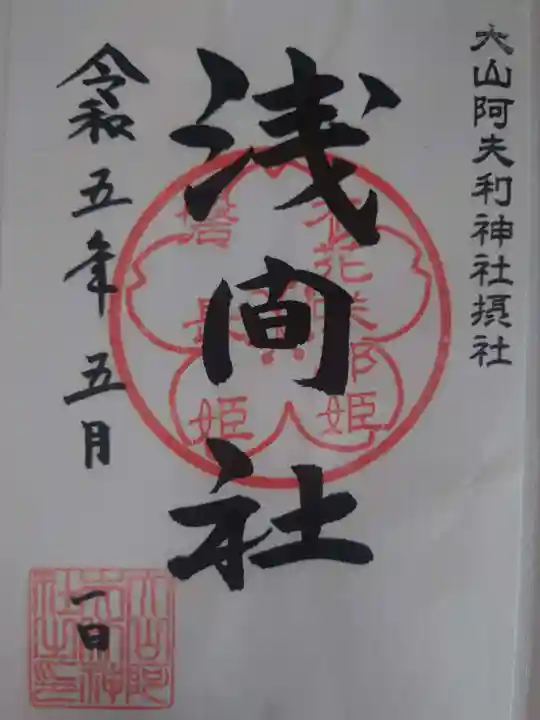 大山阿夫利神社摂社
浅間社
令和五年五月
一日
木花咲耶姫
磐長姫